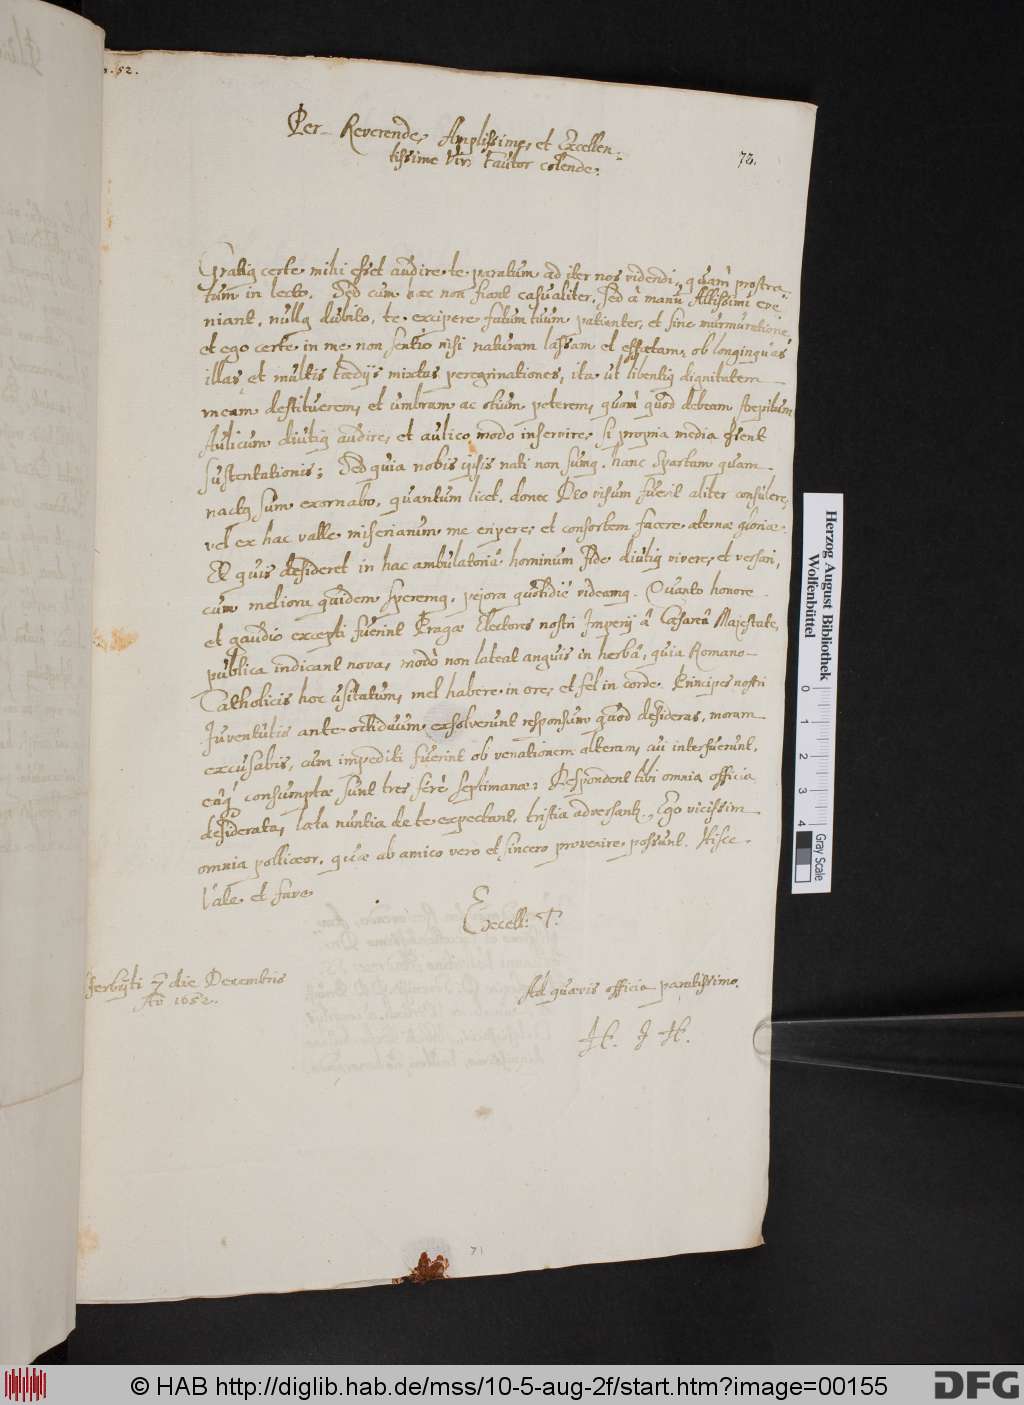 52.
Per Reverende, Amplissime, et Excellen-
tissime Vir, Fautor colende.
73.
Gratiq certe mihi esset audire te paratum ad iter nos videndi, quam prostra-
tum in lecto. Sed cum hæc non fiant casualiter, sed à manu Altissimi eve-
niant, nullq dubito, te excipere fatum tuum patienter, et sine murmuratione,
et ego certe in me non sentio nisi naturam lassam et effœtam, ob longinquas
illas, et multis tædijs mixtas peregrinationes, ita ut libentiq dignitatem
meam destituerem, et umbram ac otium peterem, quam quod debeam strepitum
Aulicum diutiq audire, et aulico modo inservire, si propria media essent
sustentationis; Sed quia nobis ipsis nati non sumq, hanc Spartam quam
nactq sum exornabo, quantum licet, donec Deo visum fuerit aliter consulere,
vel ex hac valle miseriarum me eripere, et consortem facere æternæ gloriæ.
Et quis desideret in hac ambulatoriâ hominum fide diutiq vivere, et versari,
cum meliora quidem speremq, pejora quotidiè videamq. Quanto honore
et gaudio excepti fuerint Pragæ Electores nostri Imperij â Cæsareâ Majestate,
publica indicant nova, modò non lateat anguis in herbâ, quia Romano-
Catholicis hoc usitatum, mel habere in ore, et fel in corde. Principes nostri
Juventutis ante octiduum exsolverunt responsum quod desideras, moram
excusabis, cum impediti fuerint ob venationem alteram, cui interfuerunt,
eaq́ consumptæ sunt tres ferè septimanæ; Respondent tibi omnia officia
desiderata, læta nuntia de te expectant, tristia adversantr., Ego vicissim
omnia polliceor, quæ ab amico vero et sincero provenire possunt. Hisce
Vale et fave
Excell: T:
Servbyti 7 die Decembris
Aõ 1652.
Ad quævis officia paratissimo.
H. J H.
71
Herzog August Bibliothek
Wolfenbüttel
0 1 2 3 4
Gray Scale
© HAB http://diglib.hab.de/mss/10-5-aug-2f/start.htm?image=00155
DFG